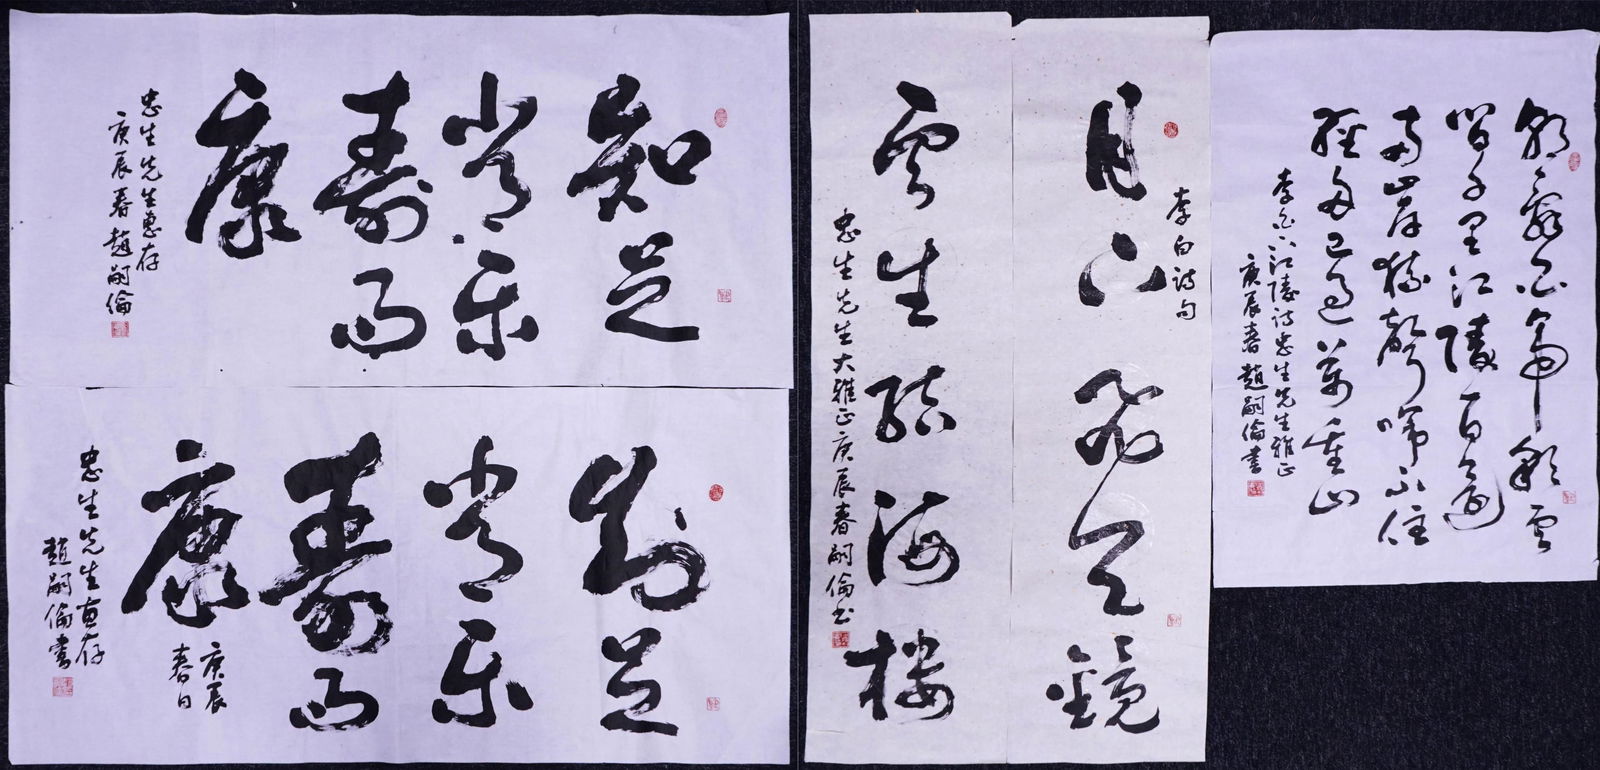 知足
常乐
壽而
康
忠生先生惠存
庚辰春趙嗣倫
知足
常乐
壽而
康
庚辰
春日
忠生先生惠存
趙嗣倫書
李白詩句
月下飛天鏡
雲生结海楼
忠生先生大雅正庚辰春嗣倫书
朝辭白帝彩雲
間千里江陵一日還
两岸猿聲啼不住
輕舟已過萬重山
李白下江陵詩忠生先生雅正
庚辰春趙嗣倫書